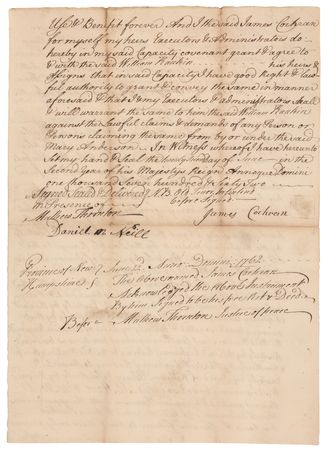 Use & Benefit forever And I the said James Cochran
for myself my heirs Executors & Administrators do
hereby in my said Capacity covenant grant & agree to
& with the said William Rankin his heirs &
assigns that in said Capacity I have good Right & law
ful authority to grant & convey the same in manner
aforesaid & that I & my Executors & administrators shall
& will warrant the same to him the said William Rankin
against the lawful claims & demands of any Person or
Persons claiming the same from by or under the said
Mary Anderson In Witness whereof I have hereunto
Set my hand & Seal the twenty Second day of June in the
Second year of his Majestys Reign Annoque Domini
one thousand Seven hundred & Sixty Two
Signed Sealed & Delivered N.B.
in Presence of before Signed
Matthew Thornton James Cochran
Daniel Mc Neill
Province of New June 22 Anno Domini 1762
Hampshire The Abovenamed James Cochran
Acknowledged the Above Instrument
By him Signed to be his free Act & Deed
Before Matthew Thornton Justice of Peace